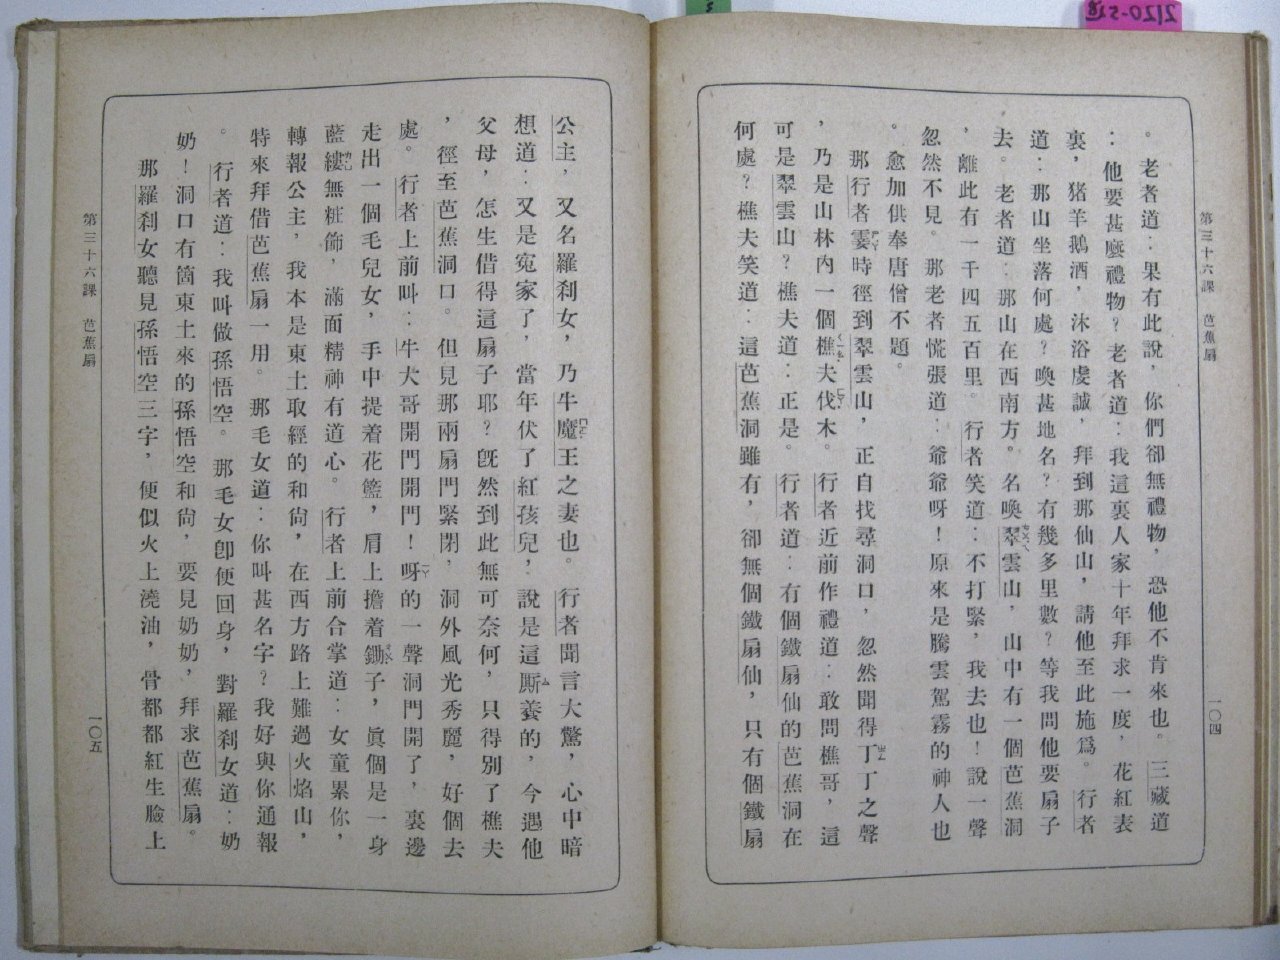 第三十六課　芭蕉扇　一〇四
。老者道：果有此說，你們卻無禮物，恐他不肯來也。三藏道
：他要甚麼禮物？老者道：我這裏人家十年拜求一度，花紅表
裏，豬羊鵝酒，沐浴虔誠，拜到那仙山，請他至此施爲。行者
道：那山坐落何處？喚甚地名？有幾多里數？等我問他要扇子
去。老者道：那山在西南方。名喚翠雲山，山中有一個芭蕉洞
，離此有一千四五百里。行者笑道：不打緊，我去也！說一聲
忽然不見。那老者慌張道：爺爺呀！原來是騰雲駕霧的神人也
。愈加供奉唐僧不題。
那行者霎時徑到翠雲山，正自找尋洞口，忽然聞得丁丁之聲
，乃是山林內一個樵夫伐木。行者近前作禮道：敢問樵哥，這
可是翠雲山？樵夫道：正是。行者道：有個鐵扇仙的芭蕉洞在
何處？樵夫笑道：這芭蕉洞雖有，卻無個鐵扇仙，只有個鐵扇
公主，又名羅刹女，乃牛魔王之妻也。行者聞言大驚，心中暗
想道：又是寃家了，當年伏了紅孩兒，說是這厮養的，今遇他
父母，怎生借得這扇子耶？旣然到此無可奈何，只得別了樵夫
，徑至芭蕉洞口。但見那兩扇門緊閉，洞外風光秀麗，好個去
處。行者上前叫：牛大哥開門開門！呀的一聲洞門開了，裏邊
走出一個毛兒女，手中提着花籃，肩上擔着鋤子，眞個是一身
藍縷無粧飾，滿面精神有道心。行者上前合掌道：女童累你，
轉報公主，我本是東土取經的和尙，在西方路上難過火焰山，
特來拜借芭蕉扇一用。那毛女道：你叫甚名字？我好與你通報
。行者道：我叫做孫悟空。那毛女卽便回身，對羅刹女道：奶
奶！洞口有箇東土來的孫悟空和尙，要見奶奶，拜求芭蕉扇。
那羅刹女聽見孫悟空三字，便似火上澆油，骨都都紅生臉上
第三十六課　芭蕉扇　一〇五